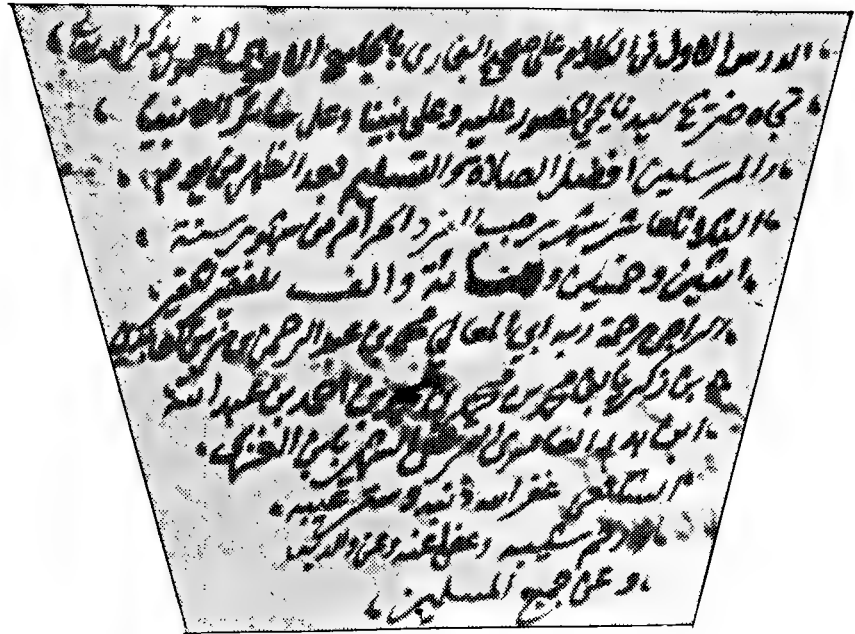 الدرس الاول في الكلام على صحيح البخاري بالجامع الاموي المعمور بذكر الله تعالى
تجاه ضريح سيدنا يحيى الحصور عليه وعلى نبينا وعلى سائر الانبيا
والمرسلين افضل الصلاة والتسليم بعد الظهر من يوم
الثلاثا عاشر شهر رجب الفرد الحرام من شهور سنة
اثنين وخمسين ومائة والف للفقير الحقير
الراجي رحمة ربه ابي المعالي محمد بن عبد الرحمن بن
بن زكريا بن محمد بن محمد بن احمد بن
العامري الشهير بابن الغزي
الشافعي غفر الله ذنبه وستر عيبه
ورحم شيبه وعفى عنه وعن والديه
وعن جميع المسلمين